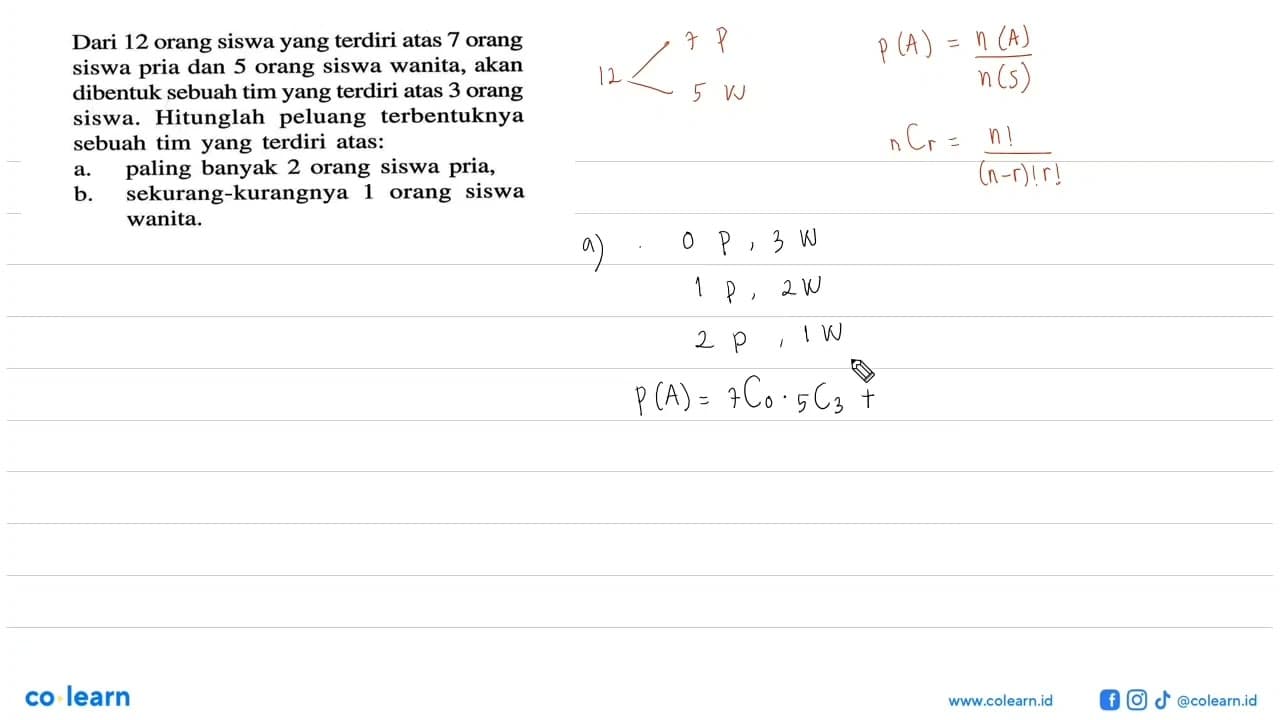 Dari 12 orang siswa yang terdiri atas 7 orang
siswa pria dan 5 orang siswa wanita, akan
dibentuk sebuah tim yang terdiri atas 3 orang
siswa. Hitunglah peluang terbentuknya
sebuah tim yang terdiri atas:
a. paling banyak 2 orang siswa pria,
b. sekurang-kurangnya 1 orang siswa
wanita.
12
7 P
5 W
P(A) = n(A)
n(S)
nCr = n!
(n-r)! r!
a) . 0 P, 3 W
1 P, 2 W
2 P, 1 W
P(A) = 7C0 . 5C3 +
co learn
www.colearn.id
@colearn.id